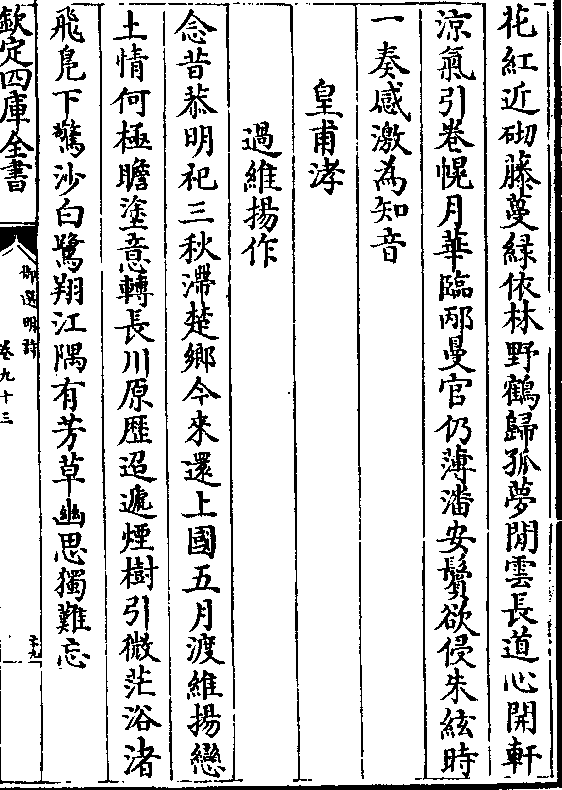 花紅近砌藤蔓緑依林野鶴歸孤夢閒雲長道心開軒
涼氣引卷幌月華臨邴曼官仍薄潘安鬢欲侵朱絃時
一奏感激為知音
皇甫涍
過維揚作
念昔恭明祀三秋滯楚鄉今來還上國五月渡維揚戀
土情何極瞻塗意轉長川原歷迢遞煙樹引微茫浴渚
飛鳬下驚沙白鷺翔江隅有芳草幽思獨難忘
欽定四庫全書
御選明詩
卷九十三